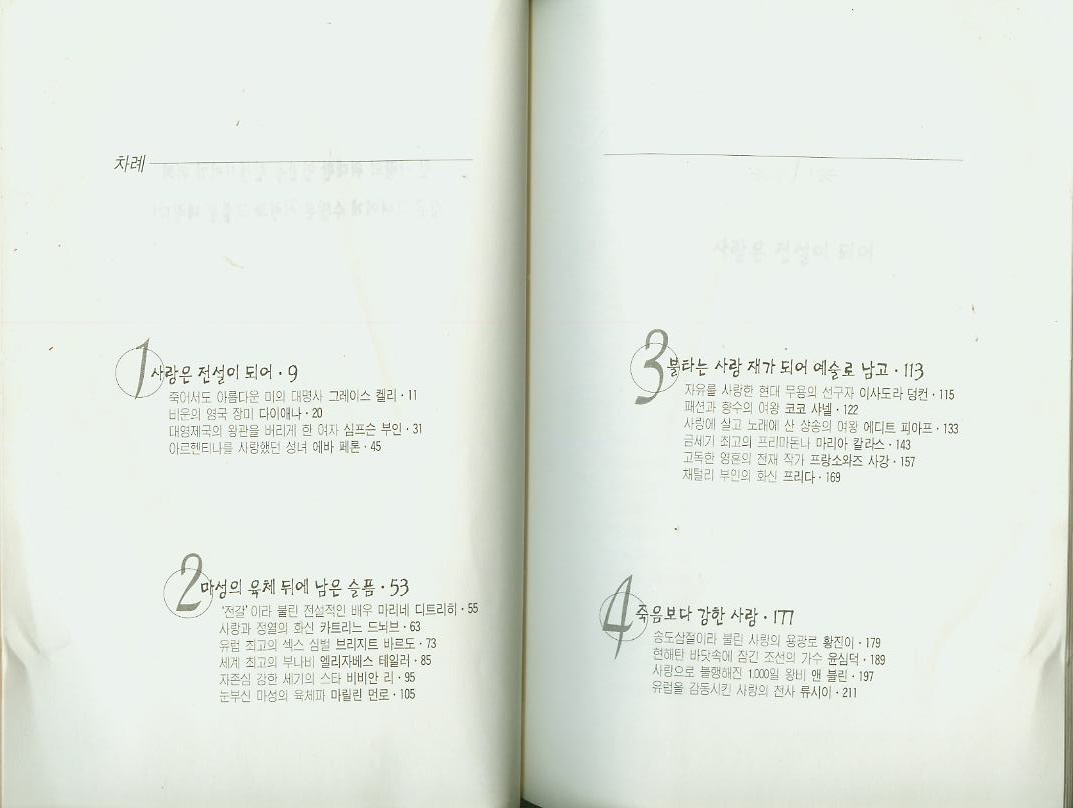 차례
1 사랑은 전설이 되어 · 9
죽어서도 아름다운 미의 대명사 그레이스 켈리 · 11
비운의 영국 장미 다이애나 · 20
대영제국의 왕관을 버리게 한 여자 심프슨 부인 · 31
아르헨티나를 사랑했던 성녀 에바 페론 · 45
2 마성의 육체 뒤에 남은 슬픔 · 53
'전갈'이라 불린 전설적인 배우 마리네 디트리히 · 55
사랑과 정열의 화신 카트리느 드뇌브 · 63
유럽 최고의 섹스 심벌 브리지트 바르도 · 73
세계 최고의 부나비 엘리자베스 테일러 · 85
자존심 강한 세기의 스타 비비안 리 · 95
눈부신 마성의 육체파 마릴린 먼로 · 105
3 불타는 사랑 재가 되어 예술로 남고 · 113
자유를 사랑한 현대 무용의 선구자 이사도라 덩컨 · 115
패션과 향수의 여왕 코코 샤넬 · 122
사랑에 살고 노래에 산 샹송의 여왕 에디트 피아프 · 133
금세기 최고의 프리마돈나 마리아 칼라스 · 143
고독한 영혼의 천재 작가 프랑소와즈 사강 · 157
채털리 부인의 화신 프리다 · 169
4 죽음보다 강한 사랑 · 177
송도삼절이라 불린 사랑의 용광로 황진이 · 179
현해탄 바닷속에 잠긴 조선의 가수 윤심덕 · 189
사랑으로 불행해진 1,000일 왕비 앤 불린 · 197
유럽을 감동시킨 사랑의 전사 류시이 · 211